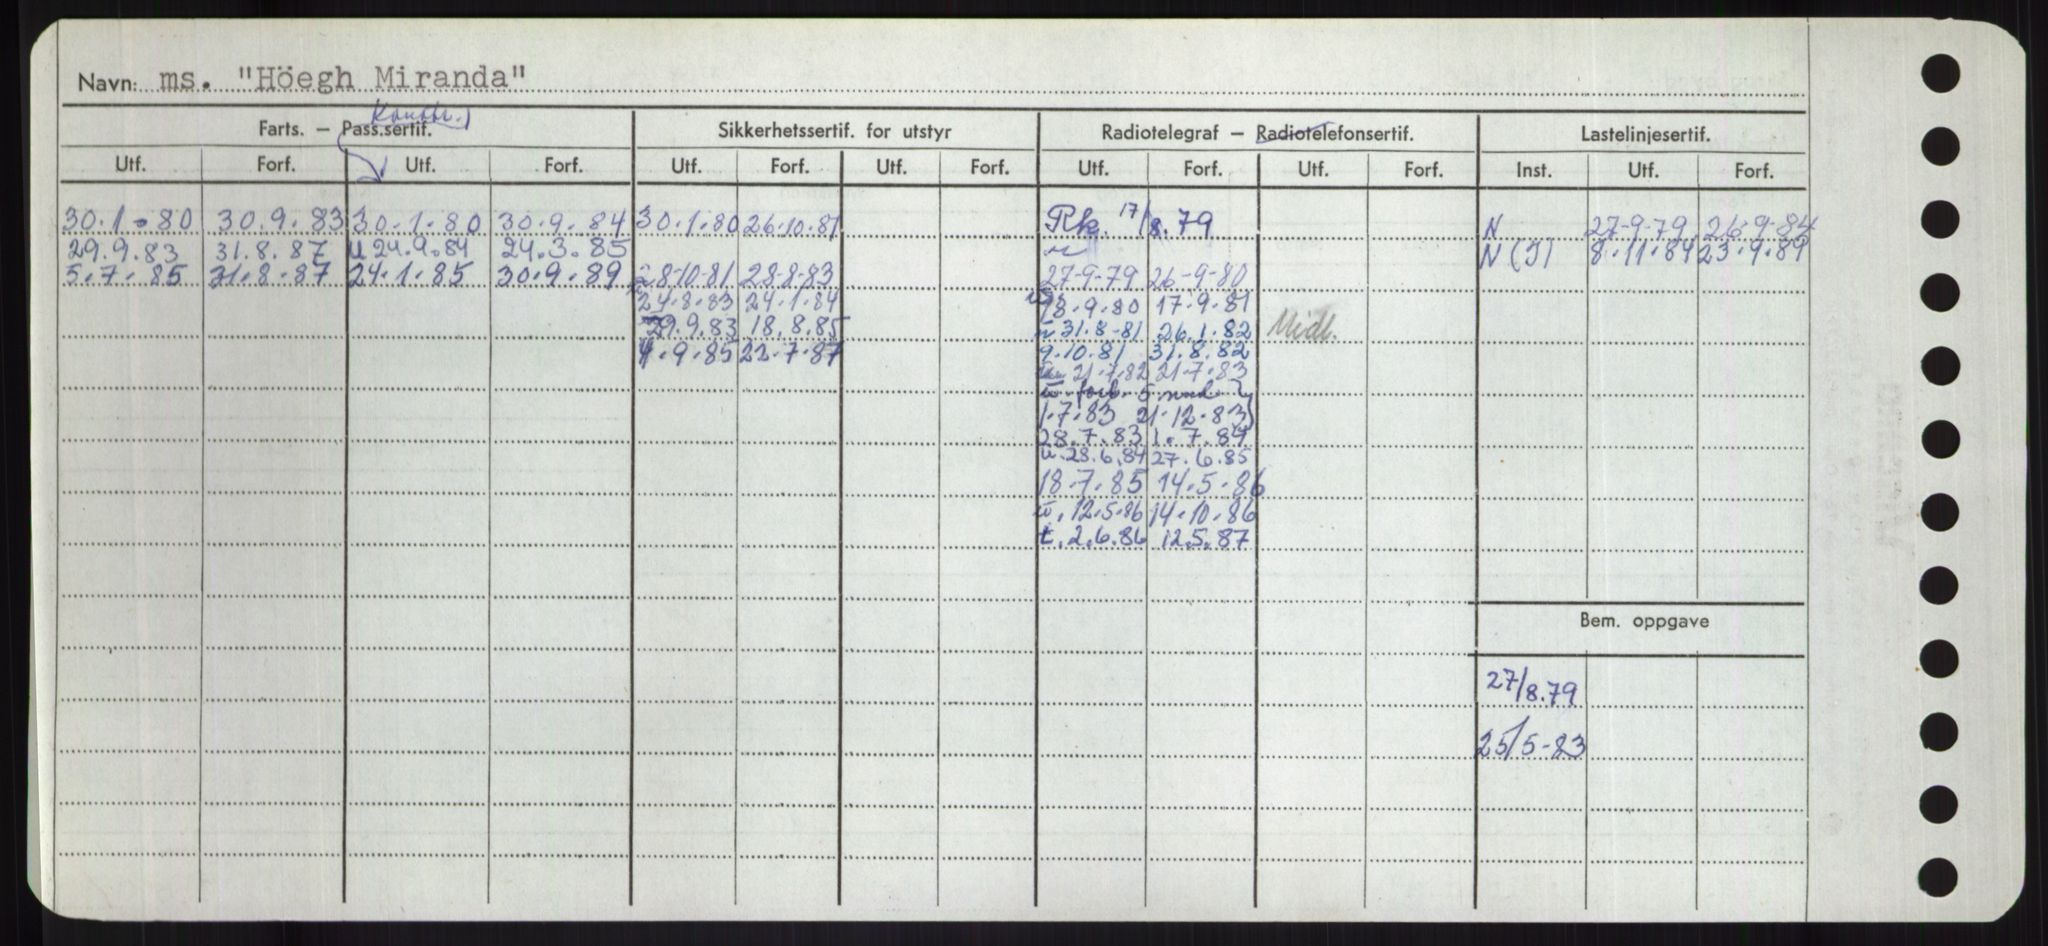 Navn: ms. "Höegh Miranda"
Konstr.)
Farts. – Pass.sertif. Sikkerhetssertif. for utstyr Radiotelegraf – Radiotelefonsertif. Lastelinjesertif.
Utf. Forf. Utf. Forf. Utf. Forf. Utf. Forf. Utf. Forf. Utf. Forf. Inst. Utf. Forf.
30.1.80 30.9.83 30.1.80 30.9.84 30.1.80 26.10.81 Rk. 17/8.79 N 27-9-79 26-9-84
29.9.83 31.8.87 U 24.9.84 24.3.85 N (I) 8.11.84 23.9.89
5.7.85 31.8.87 24.1.85 30.9.89 28-10-81 28-8-83 27-9-79 26-9-80
24.8.83 24.1.84 18.9.80 17.9.81
29.9.83 18.8.85 31.8-81 26.1.82 Midl.
4.9.85 22.7.87 9.10.81 31.8.82
21.7.82 21.7.83
forl. 5 mnd
1.7.83 21.12.83)
28.7.83 1.7.84
u.28.6.84 27.6.85
18.7.85 14.5.86
12.5.86 14.10.86
t.2.6.86 12.5.87
Bem. oppgave
27/8.79
25/5-83